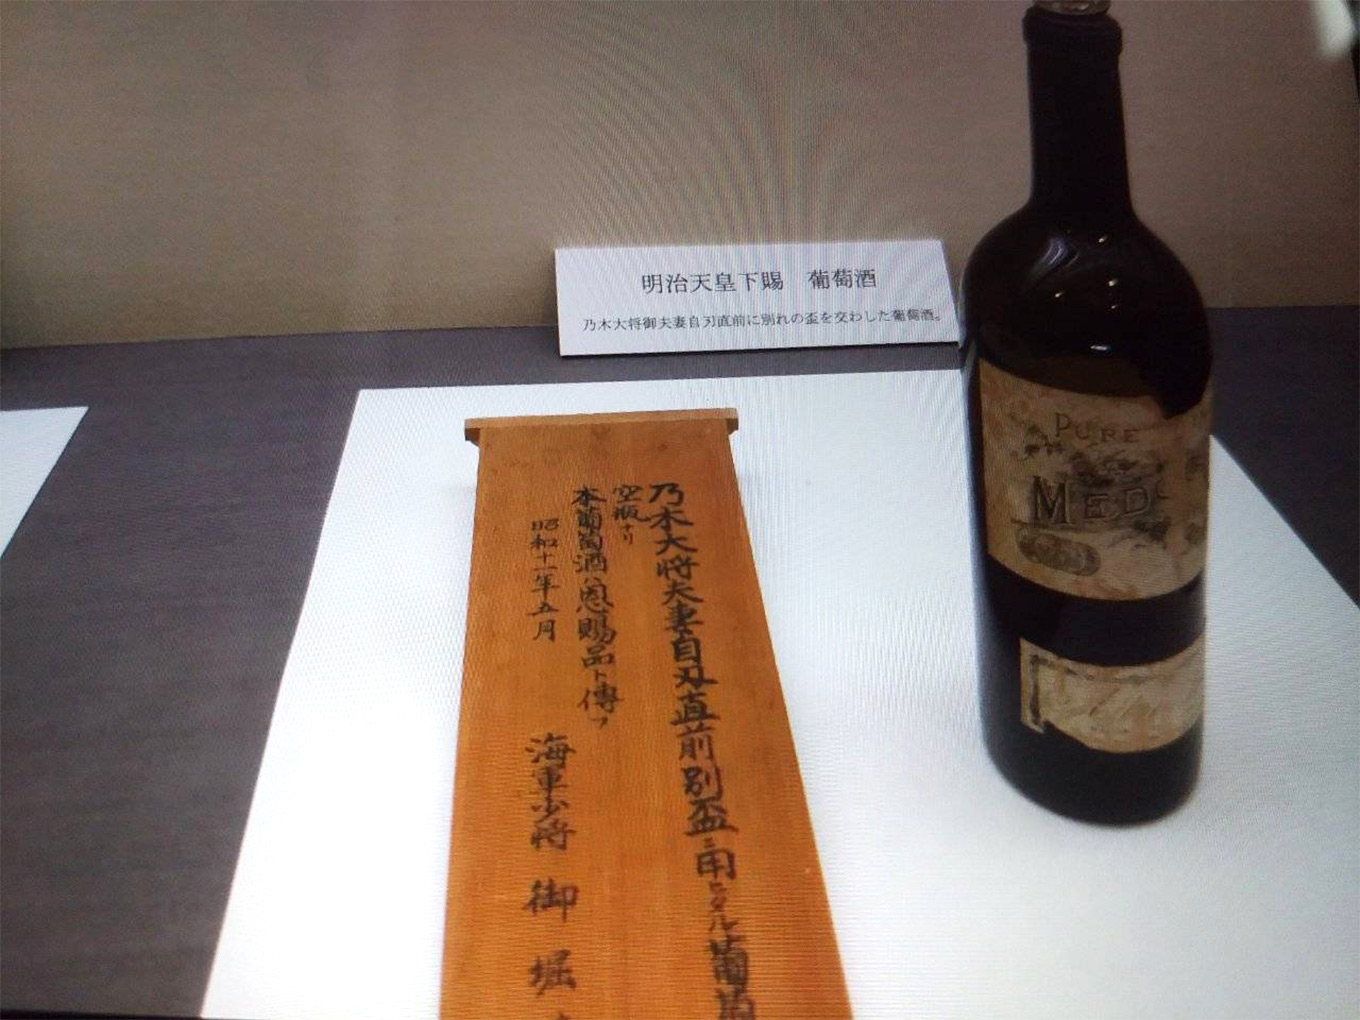 明治天皇下賜　葡萄酒
乃木大将御夫妻自刃直前に別れの盃を交わした葡萄酒。
乃木大将夫妻自刃直前別盃ニ用ヒタル葡萄
空瓶ナリ
本葡萄酒ハ恩賜品ト傳フ
昭和十一年五月
海軍少将 御堀
PURE
MEDO